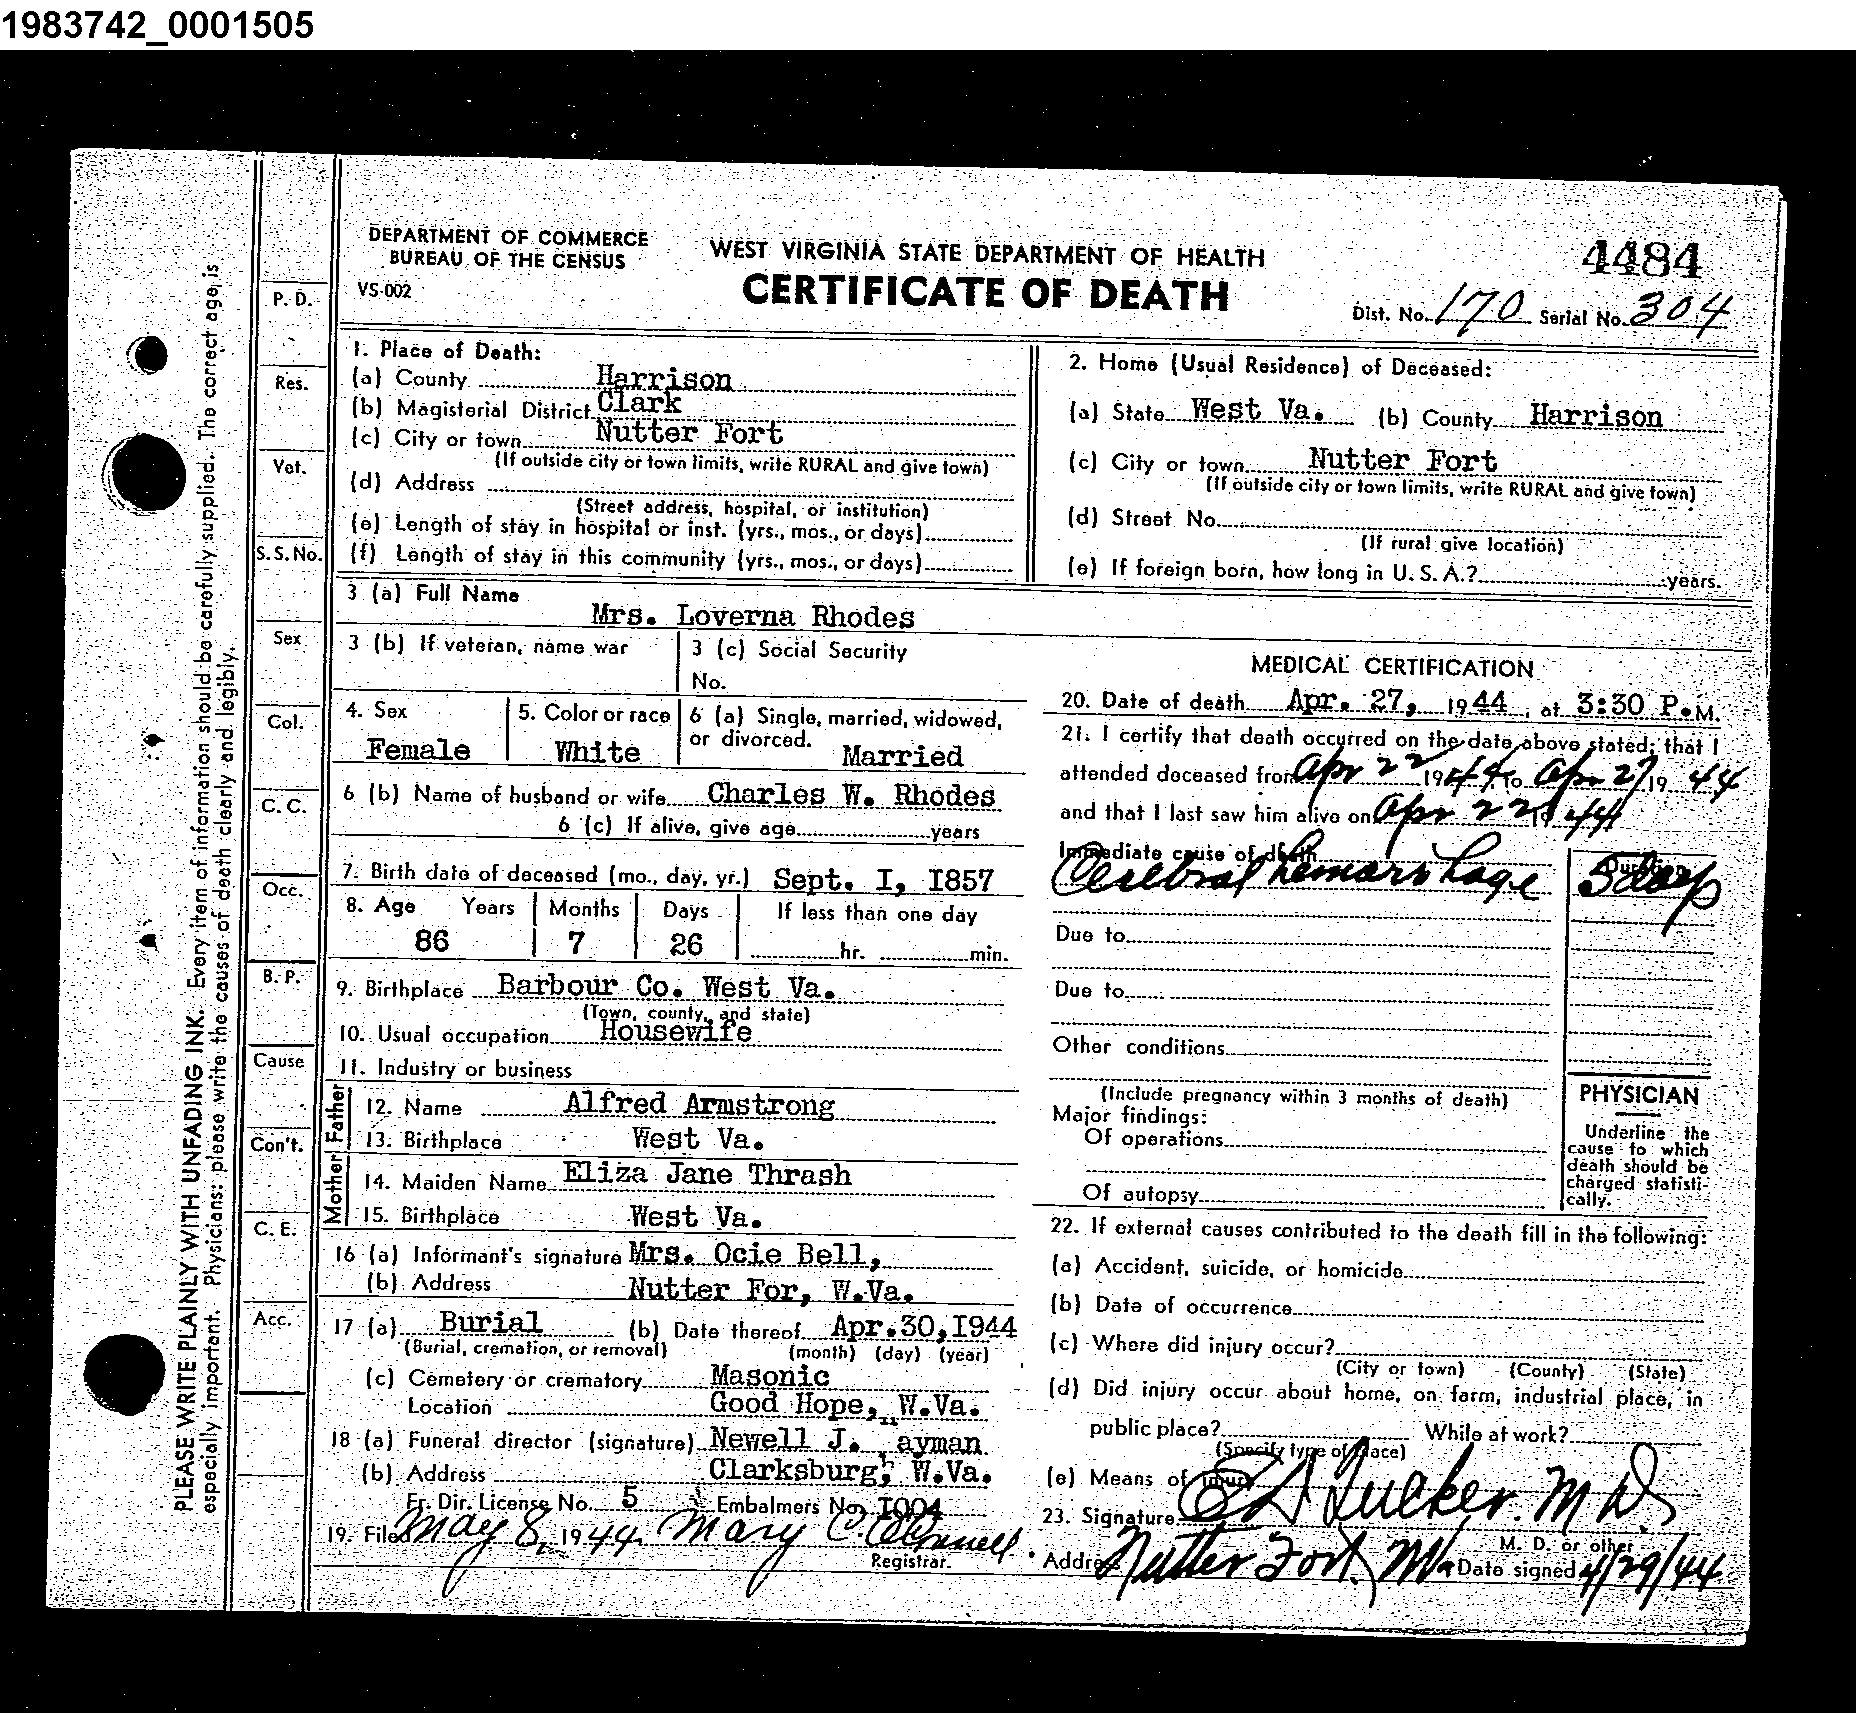 1983742_0001505
DEPARTMENT OF COMMERCE
BUREAU OF THE CENSUS
VS-002
WEST VIRGINIA STATE DEPARTMENT OF HEALTH
CERTIFICATE OF DEATH
4484
Dist. No. 170 Serial No. 304
PLEASE WRITE PLAINLY WITH UNFADING INK. Every item of information should be carefully supplied. The correct age is
especially important. Physicians: please write the causes of death clearly and legibly.
P. D.
Res.
Vet.
S. S. No.
Sex
Col.
C. C.
Occ.
B. P.
Cause
Con't.
C. E.
Acc.
1. Place of Death:
(a) County Harrison
(b) Magisterial District Clark
(c) City or town Nutter Fort
(If outside city or town limits, write RURAL and give town)
(d) Address
(Street address, hospital, or institution)
(e) Length of stay in hospital or inst. (yrs., mos., or days)
(f) Length of stay in this community (yrs., mos., or days)
2. Home (Usual Residence) of Deceased:
(a) State West Va. (b) County Harrison
(c) City or town Nutter Fort
(If outside city or town limits, write RURAL and give town)
(d) Street No.
(If rural give location)
(e) If foreign born, how long in U. S. A.? years.
3 (a) Full Name
Mrs. Loverna Rhodes
3 (b) If veteran, name war
3 (c) Social Security
No.
4. Sex
Female
5. Color or race
White
6 (a) Single, married, widowed,
or divorced. Married
6 (b) Name of husband or wife Charles W. Rhodes
6 (c) If alive, give age years
7. Birth date of deceased (mo., day, yr.) Sept. I, I857
8. Age Years Months Days If less than one day
86 7 26 hr. min.
9. Birthplace Barbour Co. West Va.
(Town, county, and state)
10. Usual occupation Housewife
11. Industry or business
Father
12. Name Alfred Armstrong
13. Birthplace West Va.
Mother
14. Maiden Name Eliza Jane Thrash
15. Birthplace West Va.
16 (a) Informant's signature Mrs. Ocie Bell,
(b) Address Nutter For, W.Va.
17 (a) Burial (b) Date thereof Apr.30,I944
(Burial, cremation, or removal) (month) (day) (year)
(c) Cemetery or crematory Masonic
Location Good Hope, W.Va.
18 (a) Funeral director (signature) Newell J. ayman
(b) Address Clarksburg, W.Va.
Fr. Dir. License No. 5 Embalmers No. I004
19. Filed May 8, 1944 Mary C.
Registrar.
MEDICAL CERTIFICATION
20. Date of death Apr. 27, 1944, at 3:30 P.M.
21. I certify that death occurred on the date above stated; that I
attended deceased from Apr 22 1944 to Apr 27 19 44
and that I last saw him alive on Apr 22 19 44
Immediate cause of death Duration
Cerebral hemarrhage 5 days
Due to
Due to
Other conditions
(Include pregnancy within 3 months of death)
Major findings:
Of operations
Of autopsy
PHYSICIAN
Underline the
cause to which
death should be
charged statisti-
cally.
22. If external causes contributed to the death fill in the following:
(a) Accident, suicide, or homicide
(b) Date of occurrence
(c) Where did injury occur?
(City or town) (County) (State)
(d) Did injury occur about home, on farm, industrial place, in
public place? While at work?
(Specify type of place)
(e) Means of injury
23. Signature Tucker. M D.
M. D. or other
Address Nutter Fort, Date signed 4/29/44